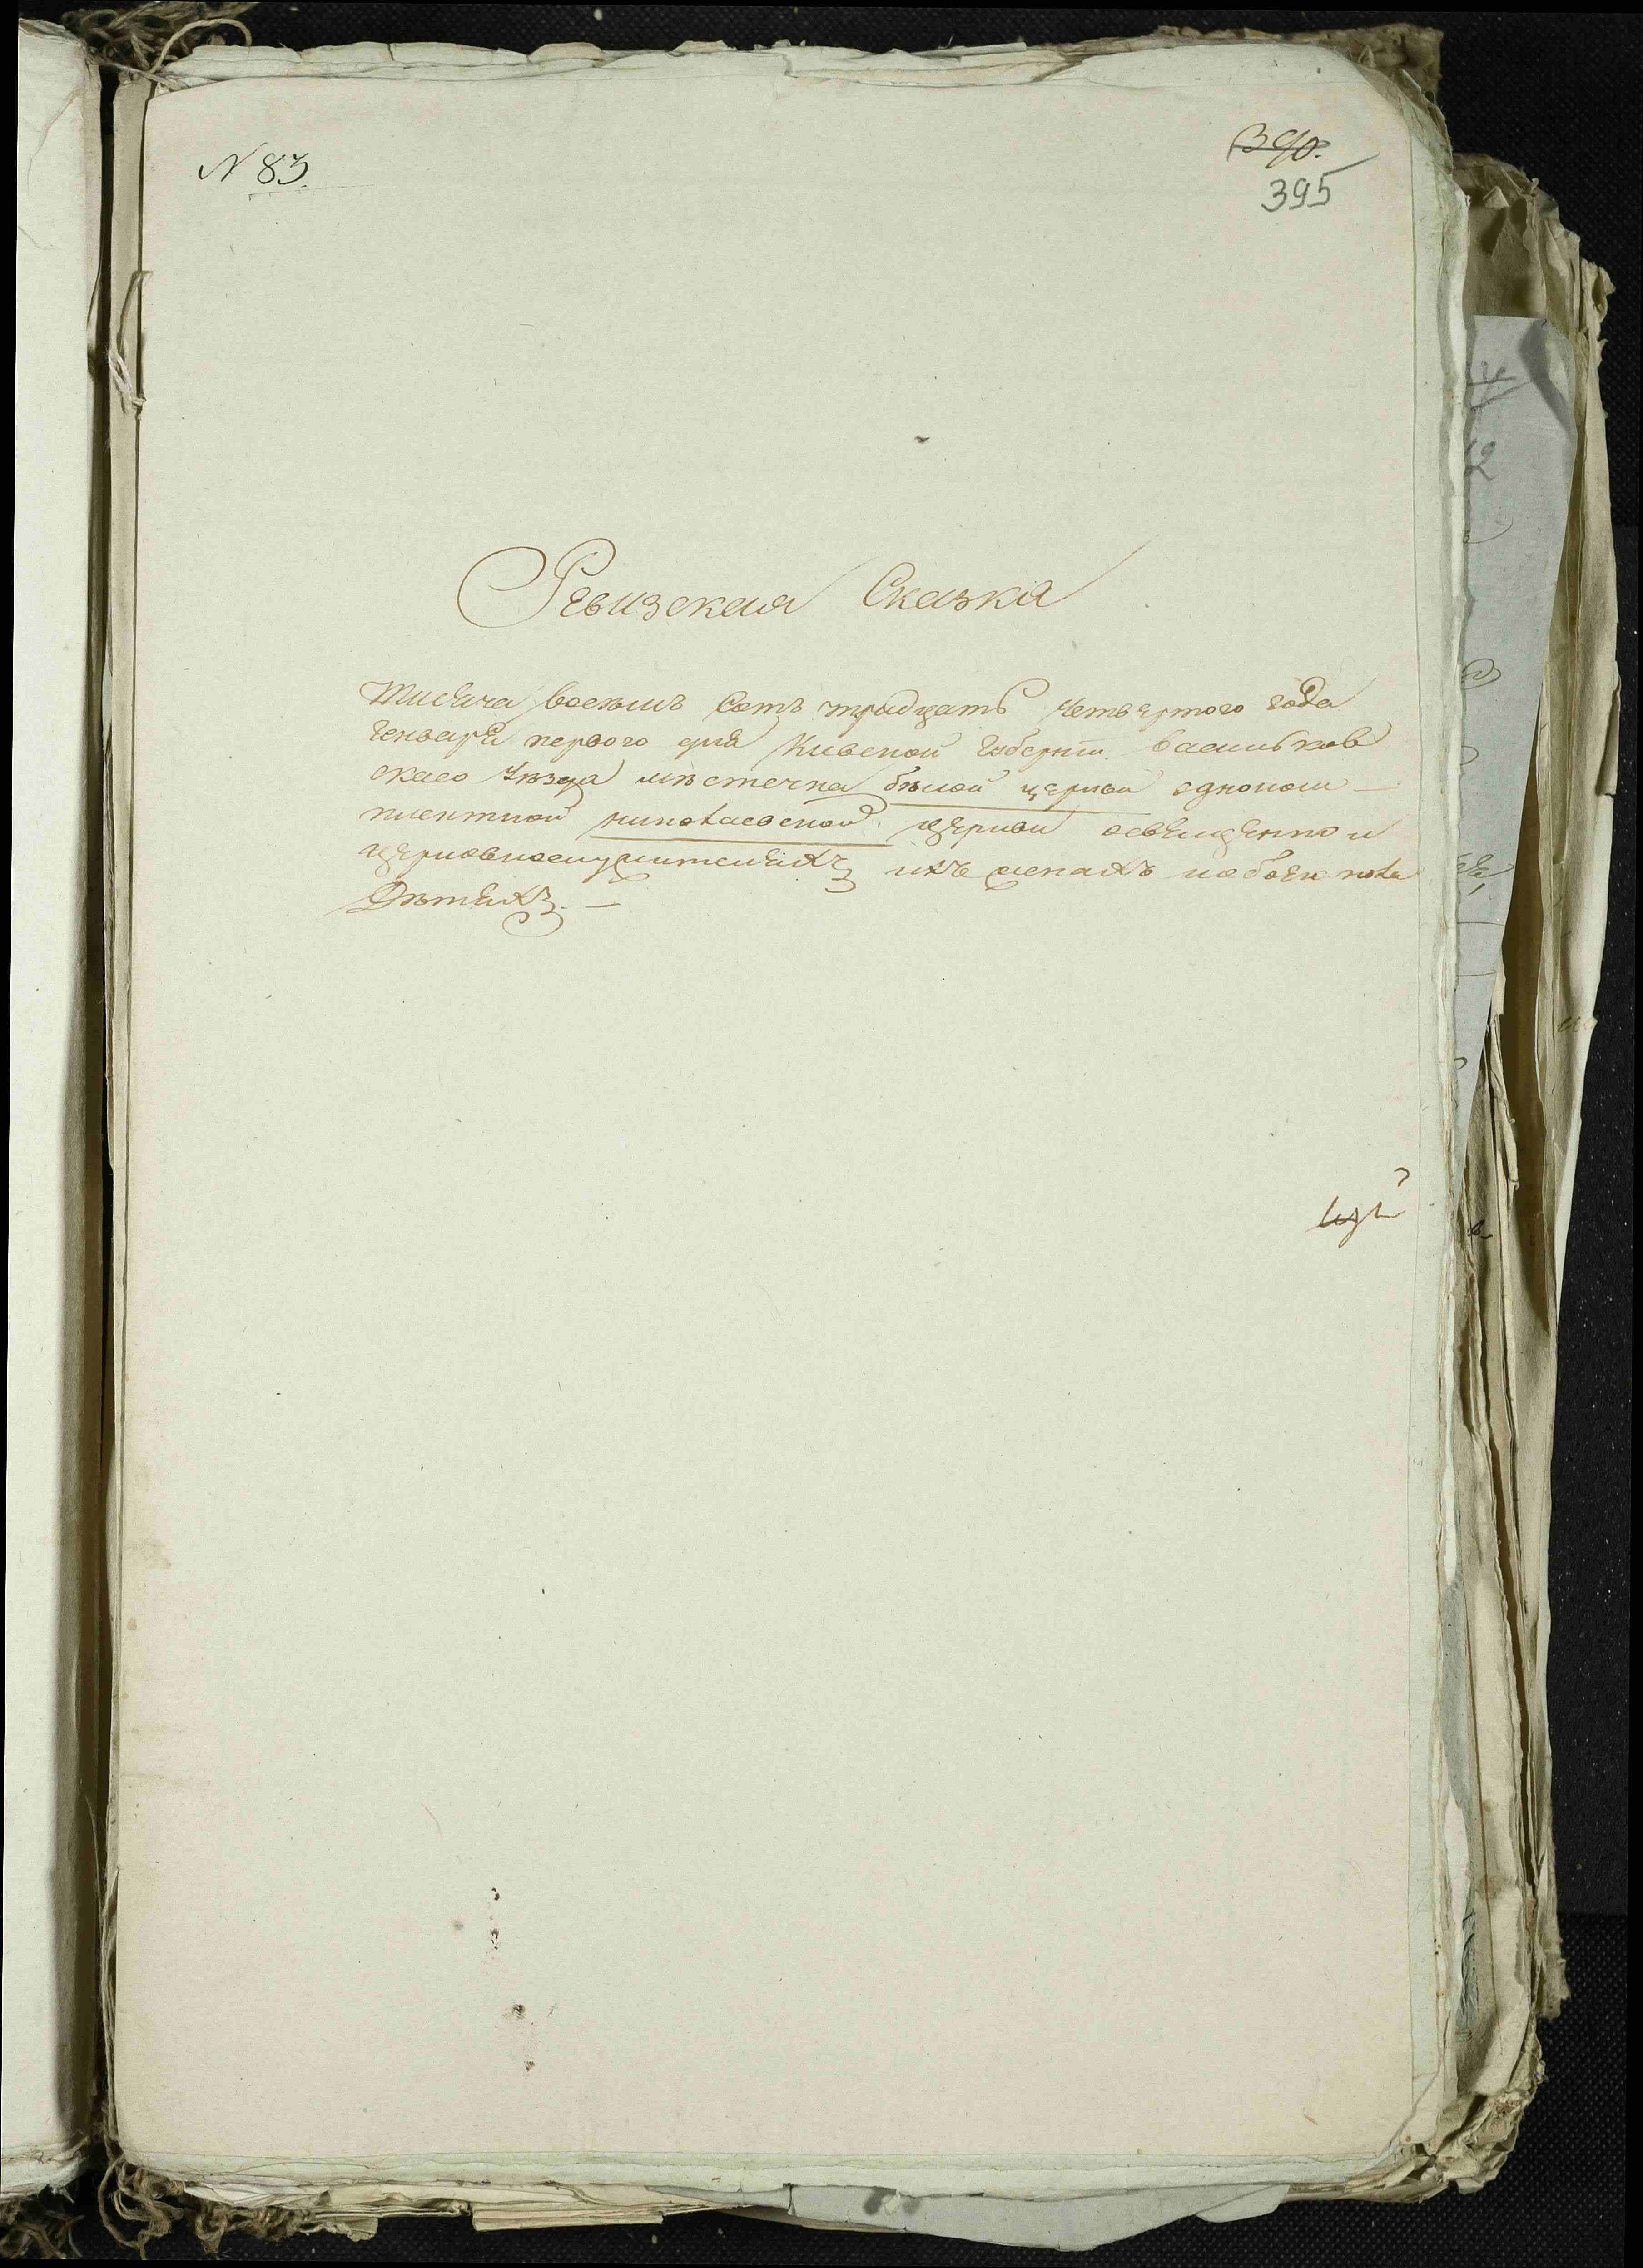 N 83.
390.
395
Ревизская Сказка
Тисяча восемь сотъ тридцать четвертого года
Генваря первого дня Киевской Губерніи Васильков
скаго уѣзда мѣстечка бѣлой церкви одноком-
плектной николаевской церкви освященно и
церковнослужителяхъ ихъ женахъ и обоего пола
Дѣтяхъ. —